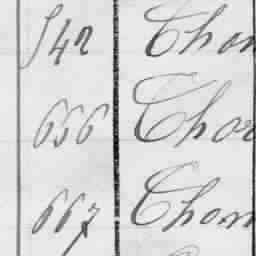 542 Thom
656 Thor
667 Thom